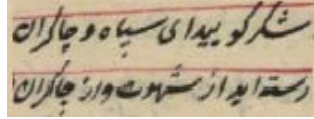 شکر گویید ای سپاه و چاکران
رسته‌اید از شهوت و از چاکران